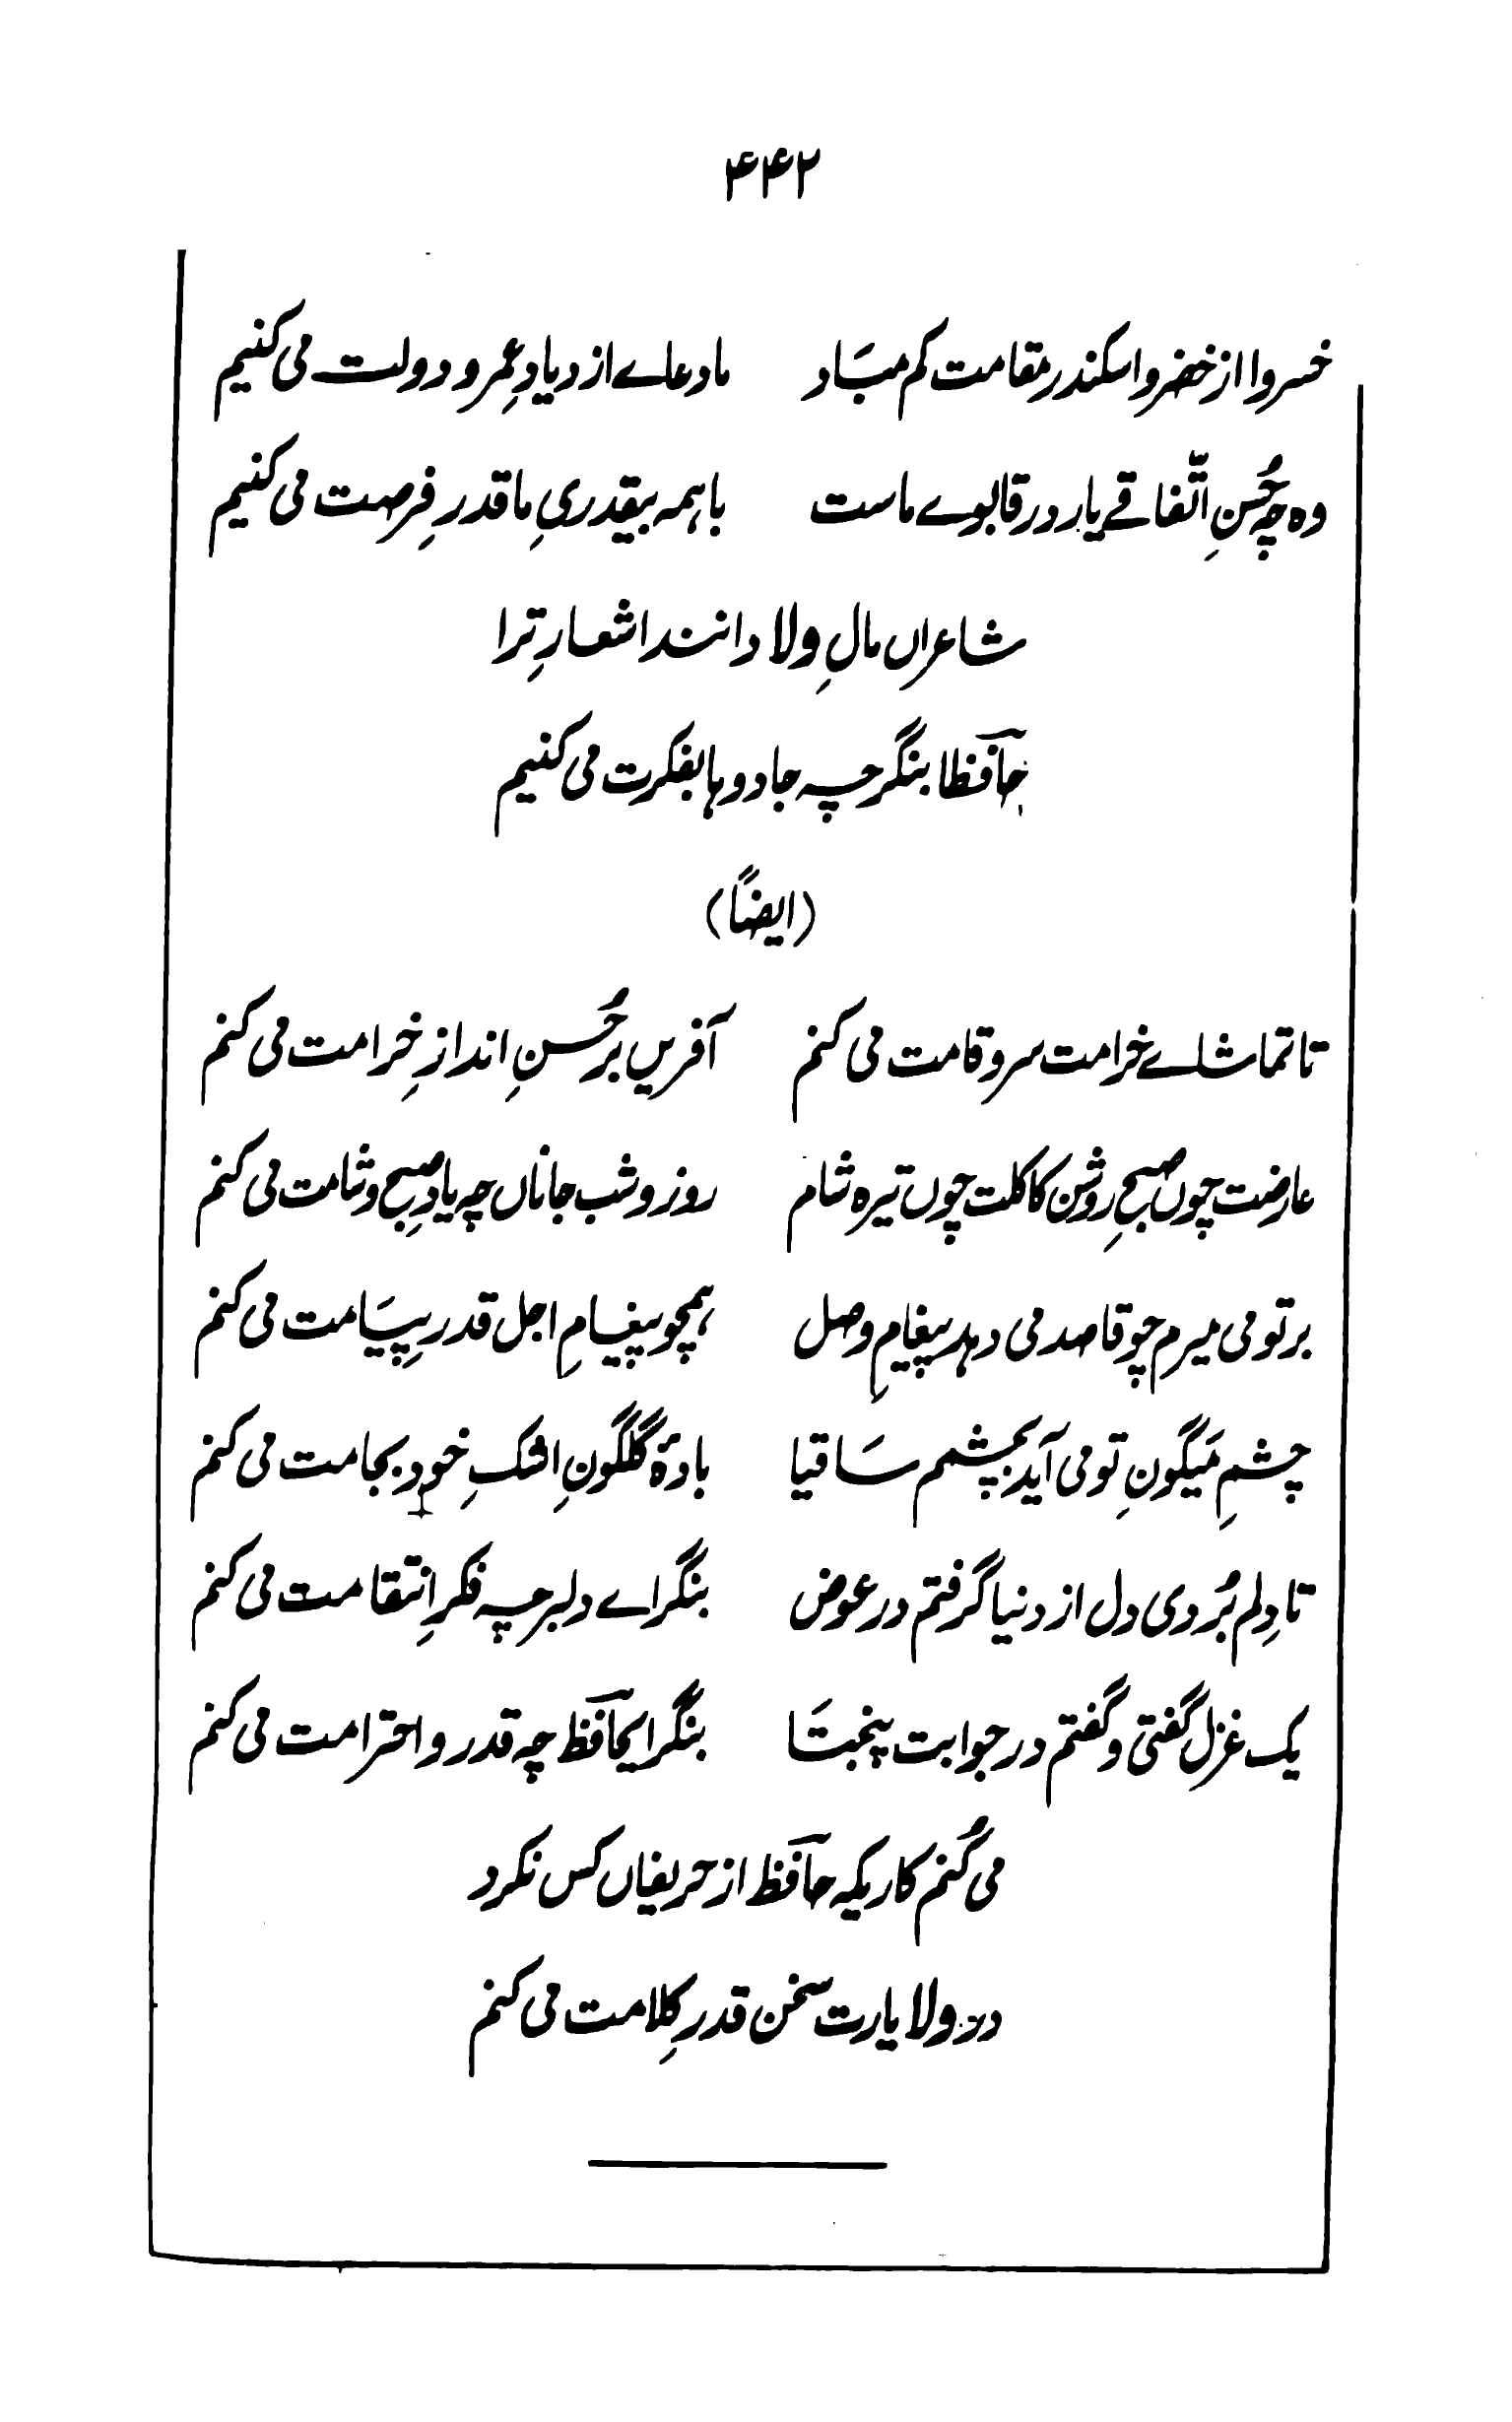 ۴۴۲
خسروا از خضر و اسکندر مقامت کم مبَاد ما دعاے ازدیادِ عمر و دولت می کنیم
وہ چہ حُسنِ اتّفاقے یار در قابوے ماست با ہمہ بیقدریِ ما قدرِ فرصت می کنیم
شاعراں مالِ وِلا دانند اشعارِ ترا
حافظا بنگر چہ جادوہا بفکرت می کنیم
(ایضاً)
تا تماشاے خرامت سرو قامت می کنم آفریں بر حُسنِ اندازِ خرامت می کنم
عارضت چوں صبحِ روشن کاکلت چوں تیرہ شام روز و شب جاناں چہ یادِ صبح و شامت می کنم
بر تو می میرم چو قاصد می دہد پیغامِ وصل ہمچو پیغامِ اجل قدرِ پیَامت می کنم
چشمِ مَیگونِ تو می آید بچشمم سَاقیا بادۂ گلگونِ اشکِ خود بجامت می کنم
تا دِلم بُردی دل از دنیا گرفتم در عوض بنگر اے دلبر چہ فکرِ اِنتقامت می کنم
یک غزل گفتی و گفتم در جوابت پنجتَا بنگر ایحافظ چہ قدر و احترامت می کنم
می کُنم کاریکہ حافظ از حریفاں کس نکرد
در وِلا یارت سخن قدرِ کلامت می کنم